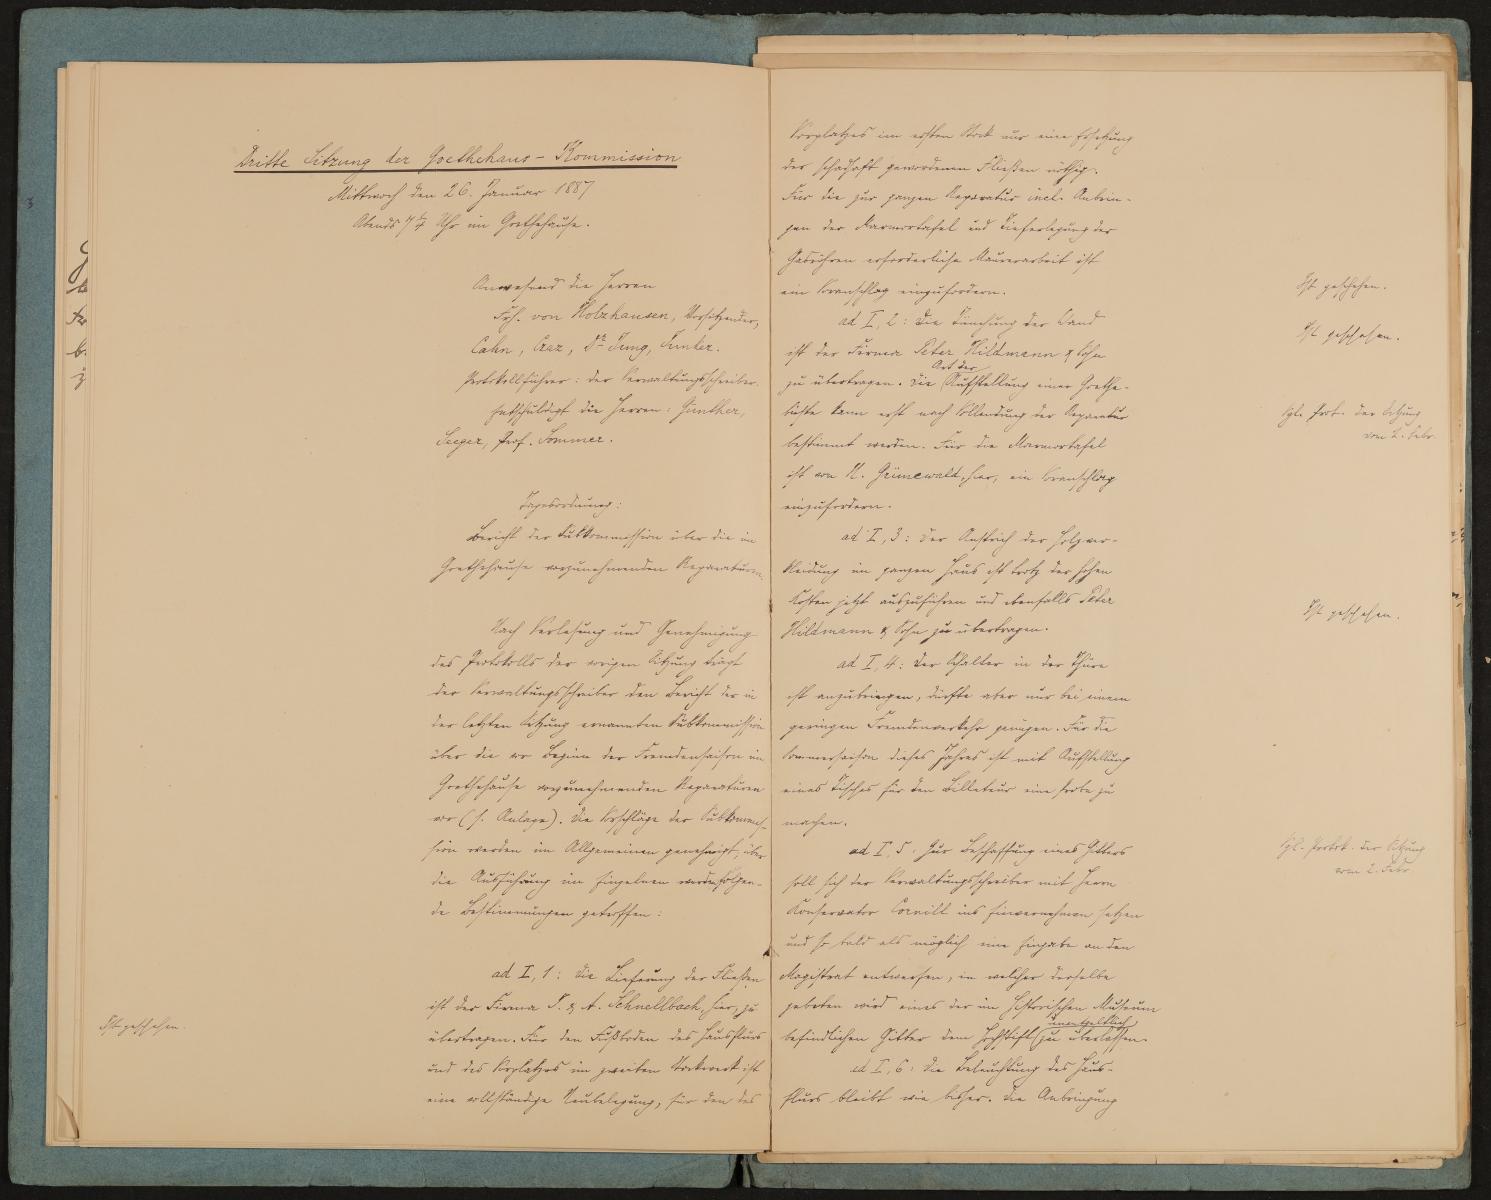 Dritte Sitzung der Goethehaus-Kommission
Mittwoch den 26. Januar 1887
Abends 7 1/4 Uhr im Goethehause.
Anwesend die Herren
Frh. von Holzhausen, Vorsitzender,
Cahn, Craz, Dr Jung, Junker.
Protokollführer: der Verwaltungsschreiber.
Entschuldigt die Herren: Günther,
Seeger, Prof. Sommer.
Tagesordnung:
Bericht der Subkommission über die im
Goethehause vorzunehmenden Reparaturen.
Nach Verlesung und Genehmigung
des Protokolls der vorigen Sitzung trägt
der Verwaltungsschreiber den Bericht der in
der letzten Sitzung ernannten Subkommission
über die vor Beginn der Fremdensaison im
Goethehause vorzunehmenden Reparaturen
vor (s. Anlage). Die Vorschläge der Subkommis-
sion werden im Allgemeinen genehmigt; über
die Ausführung im Einzelnen werden folgen-
de Bestimmungen getroffen:
ad I, 1: Die Lieferung der Fließen
ist der Firma P. & A. Schnellbach, hier, zu
Ist geschehen.
übertragen. Für den Fußboden des Hausflurs
und des Vorplatzes im zweiten Stockwerk ist
eine vollständige Neubelegung, für den des
Vorplatzes im ersten Stock nur eine Ersetzung
der schadhaft gewordenen Fließen nöthig.
Für die zur ganzen Reparatur incl. Anbrin-
gen der Marmortafel und Tieferlegung der
Gasröhren erforderliche Maurerarbeit ist
ein Voranschlag einzufordern.
Ist geschehen.
ad I, 2: Die Tünchung der Wand
Ist geschehen.
ist der Firma Peter Hildmann & Sohn
zu übertragen. Die Art der Aufstellung einer Goethe-
büste kann erst nach Vollendung der Reparatur
Vgl. Prot. der Sitzung
vom 2. Febr.
bestimmt werden. Für die Marmortafel
ist von N. Grünewald, hier, ein Voranschlag
einzufordern.
ad I, 3: Der Anstrich der Holzver-
kleidung im ganzen Haus ist trotz der hohen
Kosten jetzt auszuführen und ebenfalls Peter
Ist geschehen.
Hildmann & Sohn zu übertragen.
ad I, 4: Der Schalter in der Thüre
ist anzubringen, dürfte aber nur bei einem
geringen Fremdenverkehr genügen. Für die
Sommersaison dieses Jahres ist mit Aufstellung
eines Tisches für den Billeteur eine Probe zu
machen.
ad I, 5: Zur Beschaffung eines Gitters
Vgl. Protok. der Sitzung
vom 2. Febr.
soll sich der Verwaltungsschreiber mit Herrn
Konservator Cornill ins Einvernehmen setzen
und so bald als möglich eine Eingabe an den
Magistrat entwerfen, in welcher derselbe
gebeten wird eines der im Historischen Museum
befindlichen Gitter dem Hochstift unentgeltlich zu überlassen.
ad I, 6: Die Beleuchtung des Haus-
flurs bleibt wie bisher. Die Anbringung